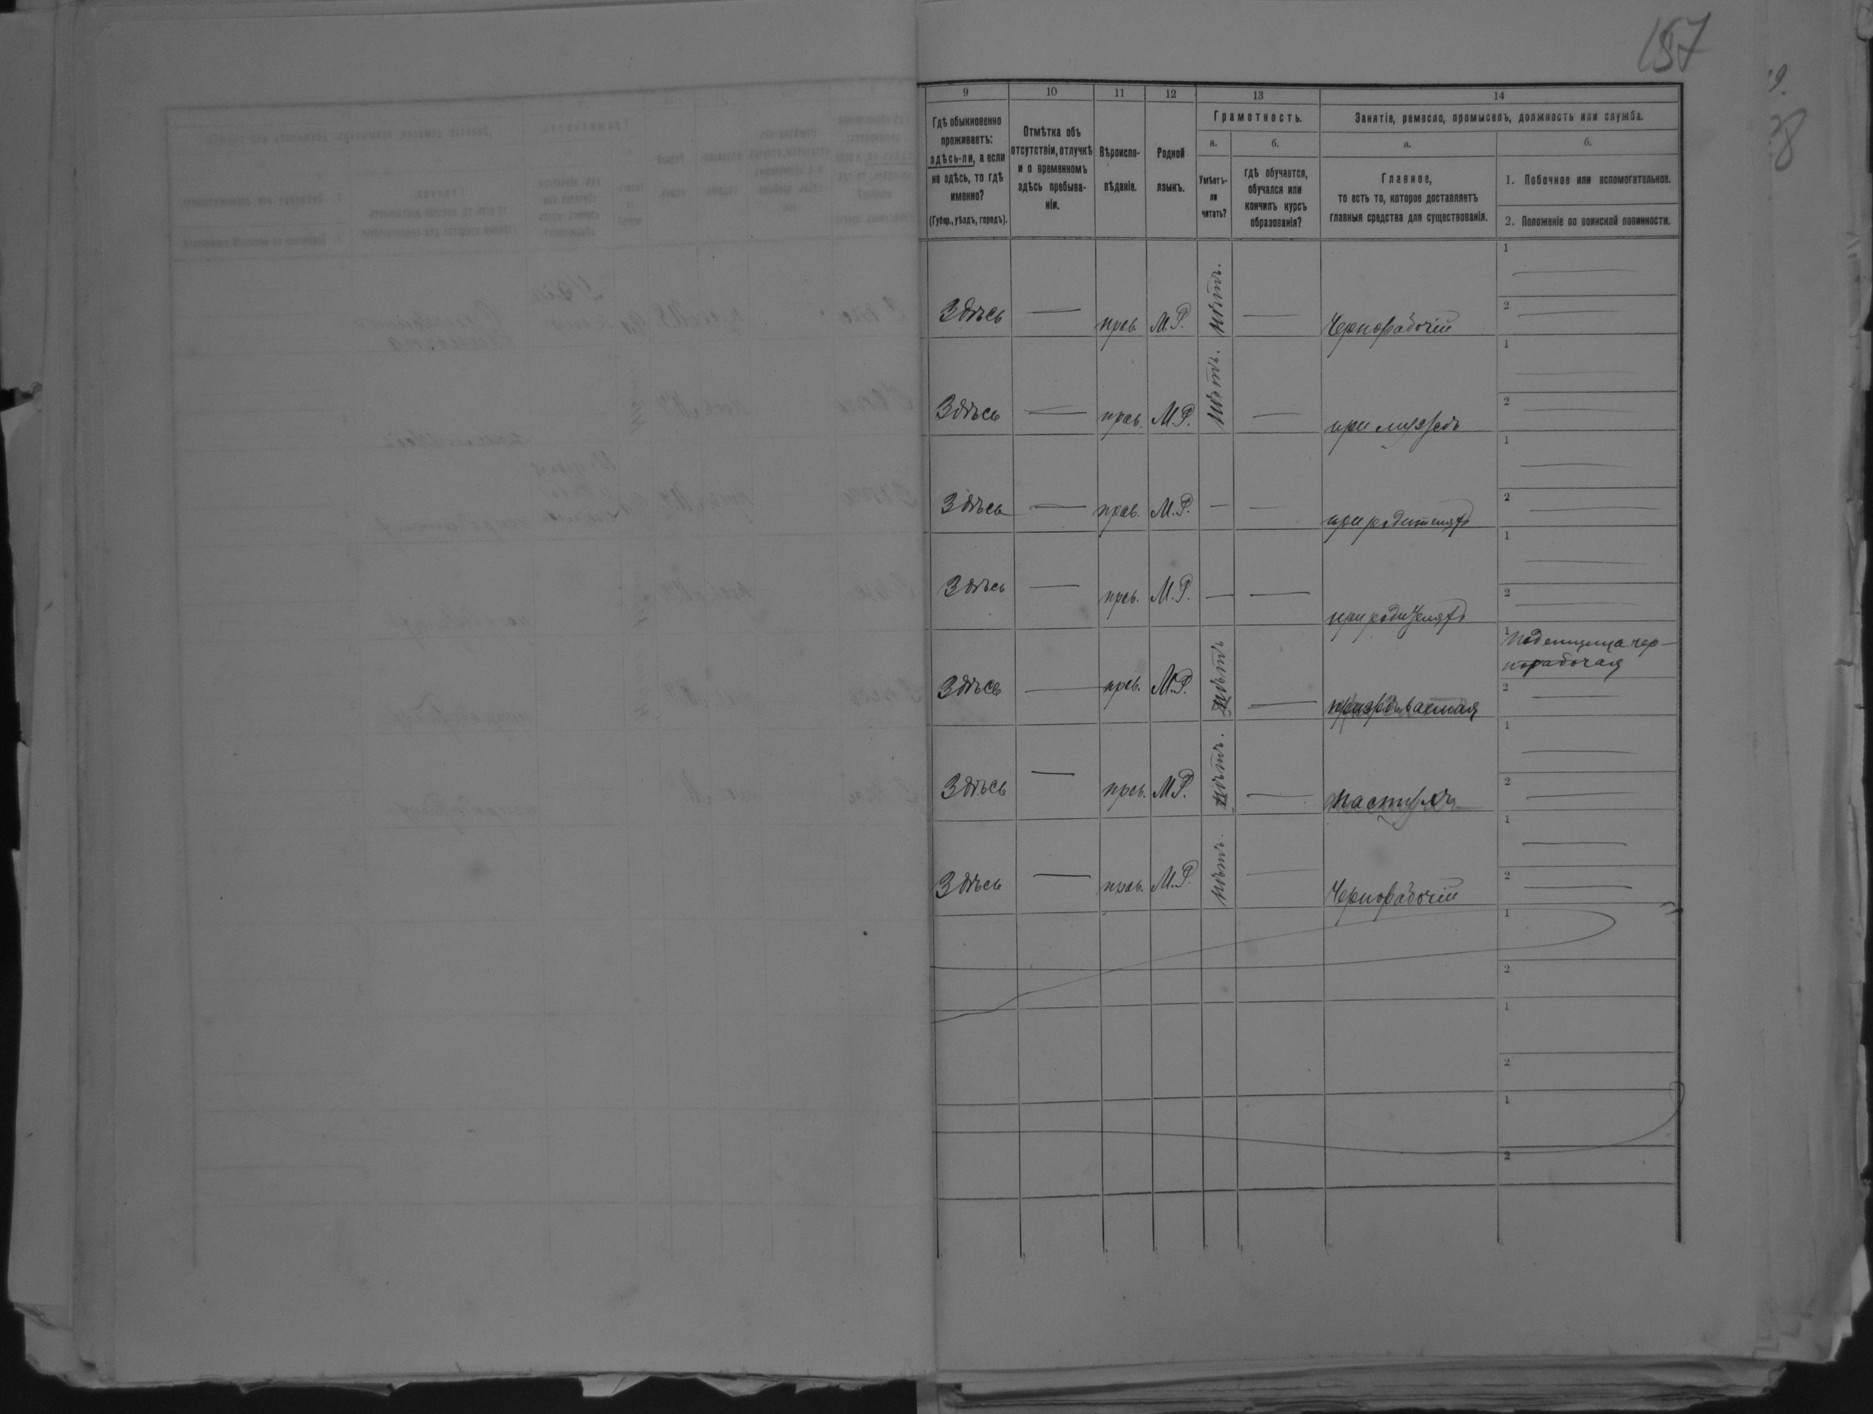 157
9 10 11 12 13 14
Гдѣ обыкновенно
проживаетъ:
здѣсь-ли, а если
не здѣсь, то гдѣ
именно?
(Губер., уѣздъ, городъ).
Отмѣтка объ
отсутствіи, отлучкѣ
и о временномъ
здѣсь пребыва-
ніи.
Вѣроиспо-
вѣданіе.
Родной
языкъ.
Грамотность.
а.
Умѣетъ-
ли
читать?
б.
гдѣ обучается,
обучался или
кончилъ курсъ
образованія?
Занятіе, ремесло, промыселъ, должность или служба.
а.
Главное,
то есть то, которое доставляетъ
главныя средства для существованія.
б.
1. Побочное или вспомогательное.
2. Положеніе по воинской повинности.
Здѣсь — прав. М.Р. нѣтъ. — Чернорабочій 1 — 2 —
Здѣсь — прав. М.Р. нѣтъ. — при 1 — 2 —
Здѣсь — прав. М.Р. — — при родителяхъ 1 — 2 —
Здѣсь — прав. М.Р. — — при родителяхъ 1 — 2 —
Здѣсь — прав. М.Р. нѣтъ — 1 Поденщица чер-
норабочая
2 —
Здѣсь — прав. М.Р. нѣтъ. — 1 — 2 —
Здѣсь — прав. М.Р. нѣтъ. — Чернорабочій 1 — 2 —
1
2
1
2
1
2